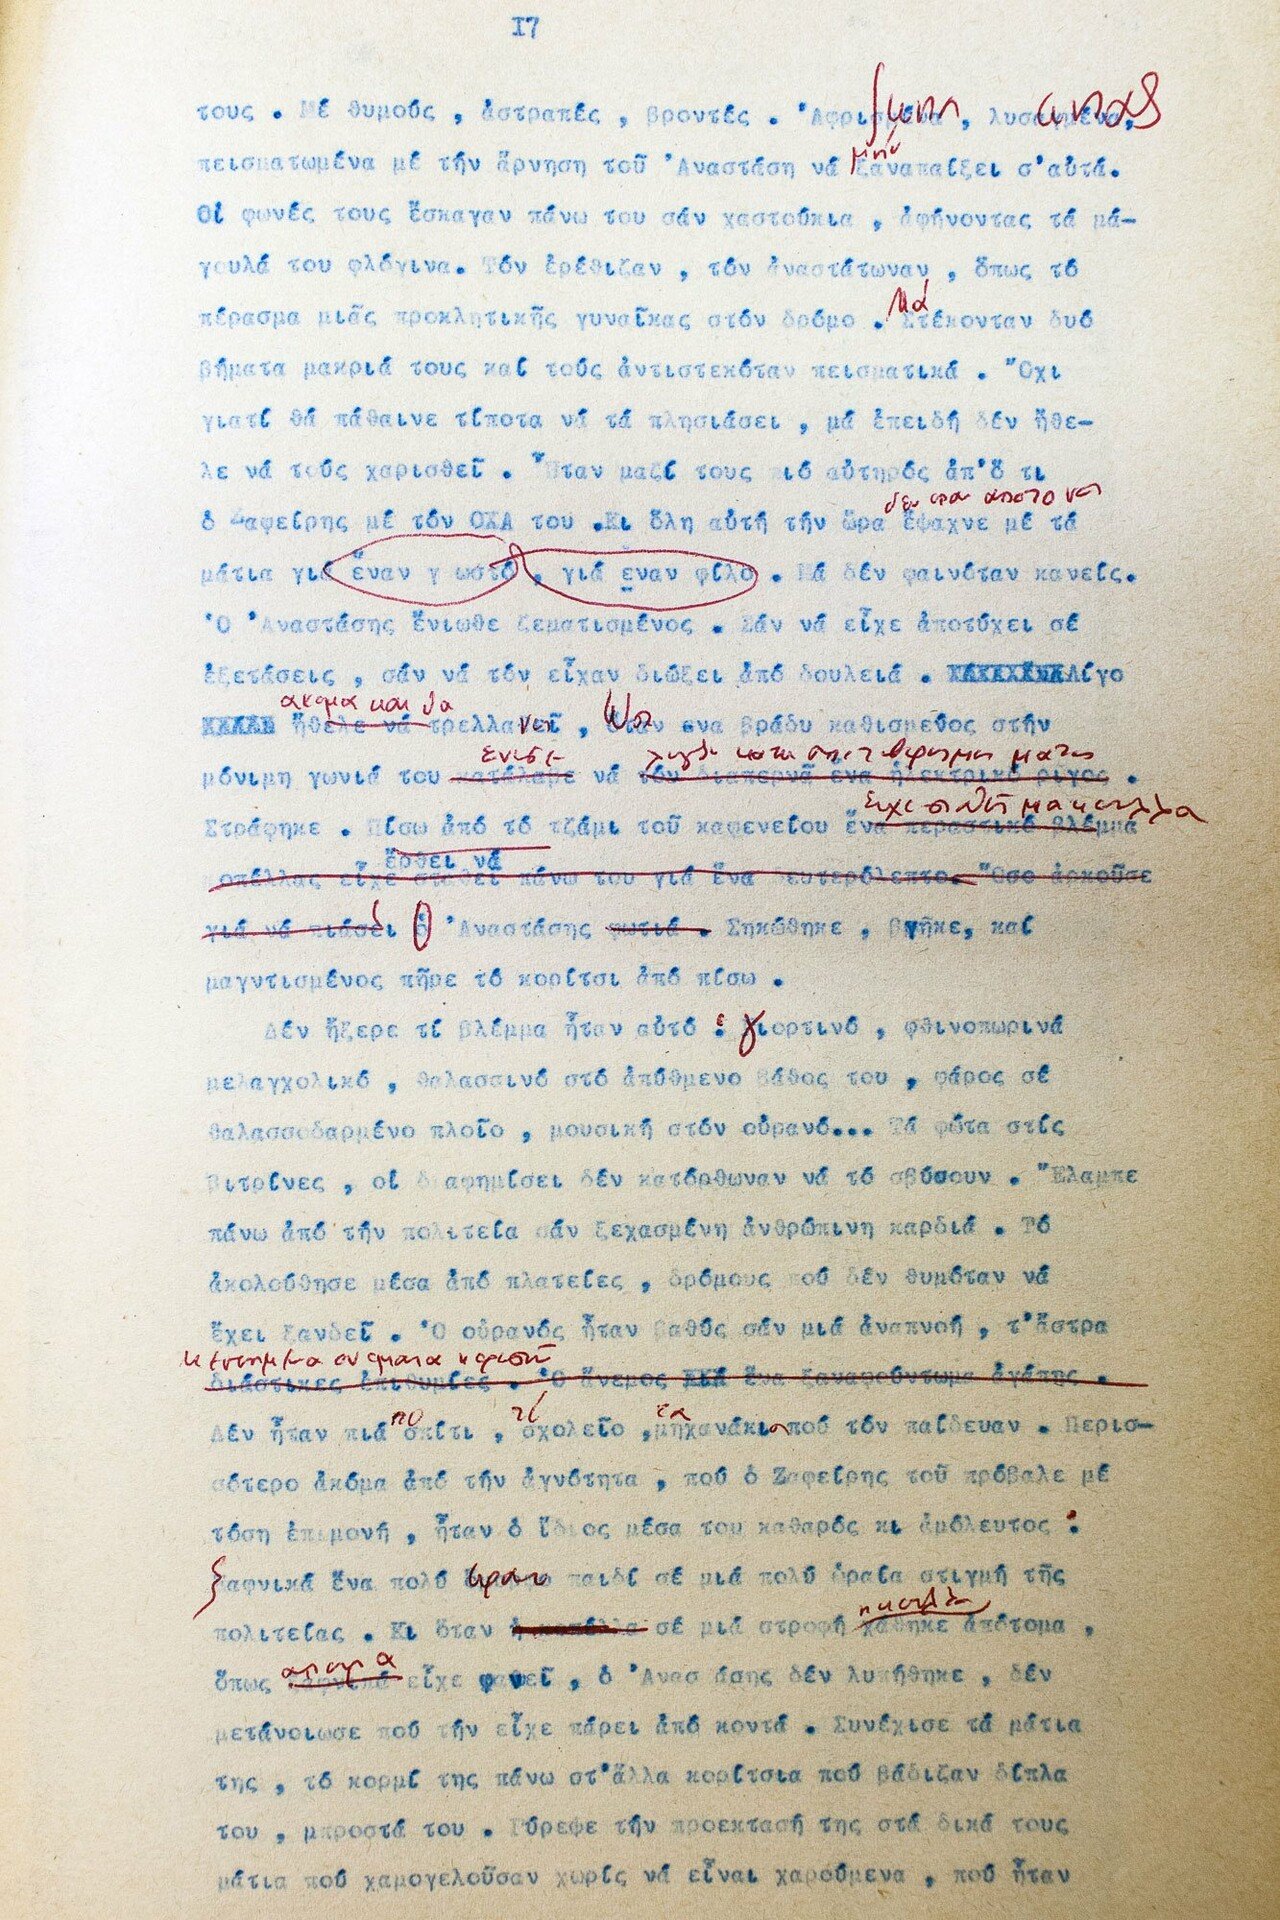 17
τους . Μέ θυμούς , ἀστραπές , βροντές . 'Αφρισμένα , λυσσαμένα,
μπάν
πεισματωμένα μέ τήν ἄρνηση τοῦ 'Αναστάση νά ξαναπαίξει σ'αὐτά.
Οἱ φωνές τους ἔσκαγαν πάνω του σάν χαστούκια , ἀφήνοντας τά μά-
γουλά του φλόγινα. Τόν ἐρέθιζαν , τόν ἀναστάτωναν , ὅπως τό
Μά
πέρασμα μιᾶς προκλητικῆς γυναῖκας στόν δρόμο . Στέκονταν δυό
βήματα μακριά τους καί τούς ἀντιστεκόταν πεισματικά . "Οχι
γιατί θά πάθαινε τίποτα νά τά πλησιάσει , μά ἐπειδή δέν ἤθε-
λε νά τούς χαρισθεῖ . Ἦταν μαζί τους πιό αὐτηρός ἀπ'ὅ τι
ὁ Ζαφείρης μέ τόν ΟΧΑ του .Κι ὅλη αὐτή τήν ὥρα ἔψαχνε μέ τά
μάτια γιά ἕναν γ ωστό , γιά εναν φίλο . Μά δέν φαινόταν κανείς.
'Ο 'Αναστάσης ἔνιωθε ζεματισμένος . Σάν νά εἶχε ἀποτύχει σέ
ἐξετάσεις , σάν νά τόν εἶχαν διώξει ἀπό δουλειά . Λίγο
ακόμα και θα
ἤθελε νά τρελλαθεῖ , ὅταν ενα βράδυ καθισμένος στήν
μόνιμη γωνιά του κατάλαβε νά τόν διαπερνᾶ ἕνα ἠλεκτρικό ρίγος .
Στράφηκε . Πίσω ἀπό τό τζάμι τοῦ καφενείου ἕνα περαστικό βλέμμα
ἔρθει νά
κοπέλλας εἶχε σταθεῖ πάνω του γιά ἕνα δευτερόλεπτο. "Οσο ἀρκοῦσε
γιά νά πιάσει ὁ 'Αναστάσης φωτιά . Σηκώθηκε , βγῆκε, καί
μαγντισμένος πῆρε τό κορίτσι ἀπό πίσω .
Δέν ἤξερε τί βλέμμα ἦταν αὐτό : γιορτινό , φθινοπωρινά
μελαγχολικό , θαλασσινό στό ἀπύθμενο βάθος του , φάρος σέ
θαλασσοδαρμένο πλοῖο , μουσική στόν οὐρανό... Τά φῶτα στίς
βιτρίνες , οἱ διαφημίσει δέν κατόρθωναν νά τό σβύσουν . "Ελαμπε
πάνω ἀπό τήν πολιτεία σάν ξεχασμένη ἀνθρώπινη καρδιά . Τό
ἀκολούθησε μέσα ἀπό πλατεῖες , δρόμους πού δέν θυμόταν νά
ἔχει ξανδεῖ . 'Ο οὐρανός ἦταν βαθύς σάν μιά ἀναπνοή , τ'ἄστρα
διάστικες ἐπιθυμίες . 'Ο ἄνεμος ἕνα ξαναφούντωμα ἀγάπης .
πο τί τα
Δέν ἦταν πιά σπίτι , σχολεῖο ,μηχανάκι πού τόν παίδευαν . Περισ-
σότερο ἀκόμα ἀπό τήν ἁγνότητα , πού ὁ Ζαφείρης τοῦ πρόβαλε μέ
τόση ἐπιμονή , ἦταν ὁ ἴδιος μέσα του καθαρός κι ἀμόλευτος :
ξαφνικά ἕνα πολύ ὡραίο παιδί σέ μιά πολύ ὡραία στιγμή τῆς
η κοπέλλα
πολιτείας . Κι ὅταν ἡ κοπέλλα σέ μιά στροφή χάθηκε ἀπότομα ,
ὅπως ξαφνικά εἶχε φανεῖ , ὁ 'Ανασ άσης δέν λυπήθηκε , δέν
μετάνοιωσε πού τήν εἶχε πάρει ἀπό κοντά . Συνέχισε τά μάτια
της , τό κορμί της πάνω στ'ἄλλα κορίτσια πού βάδιζαν δίπλα
του , μπροστά του . Γύρεφε τήν προεκτασή της στά δικά τους
μάτια πού χαμογελοῦσαν χωρίς νά εἶναι χαρούμενα , πού ἦταν